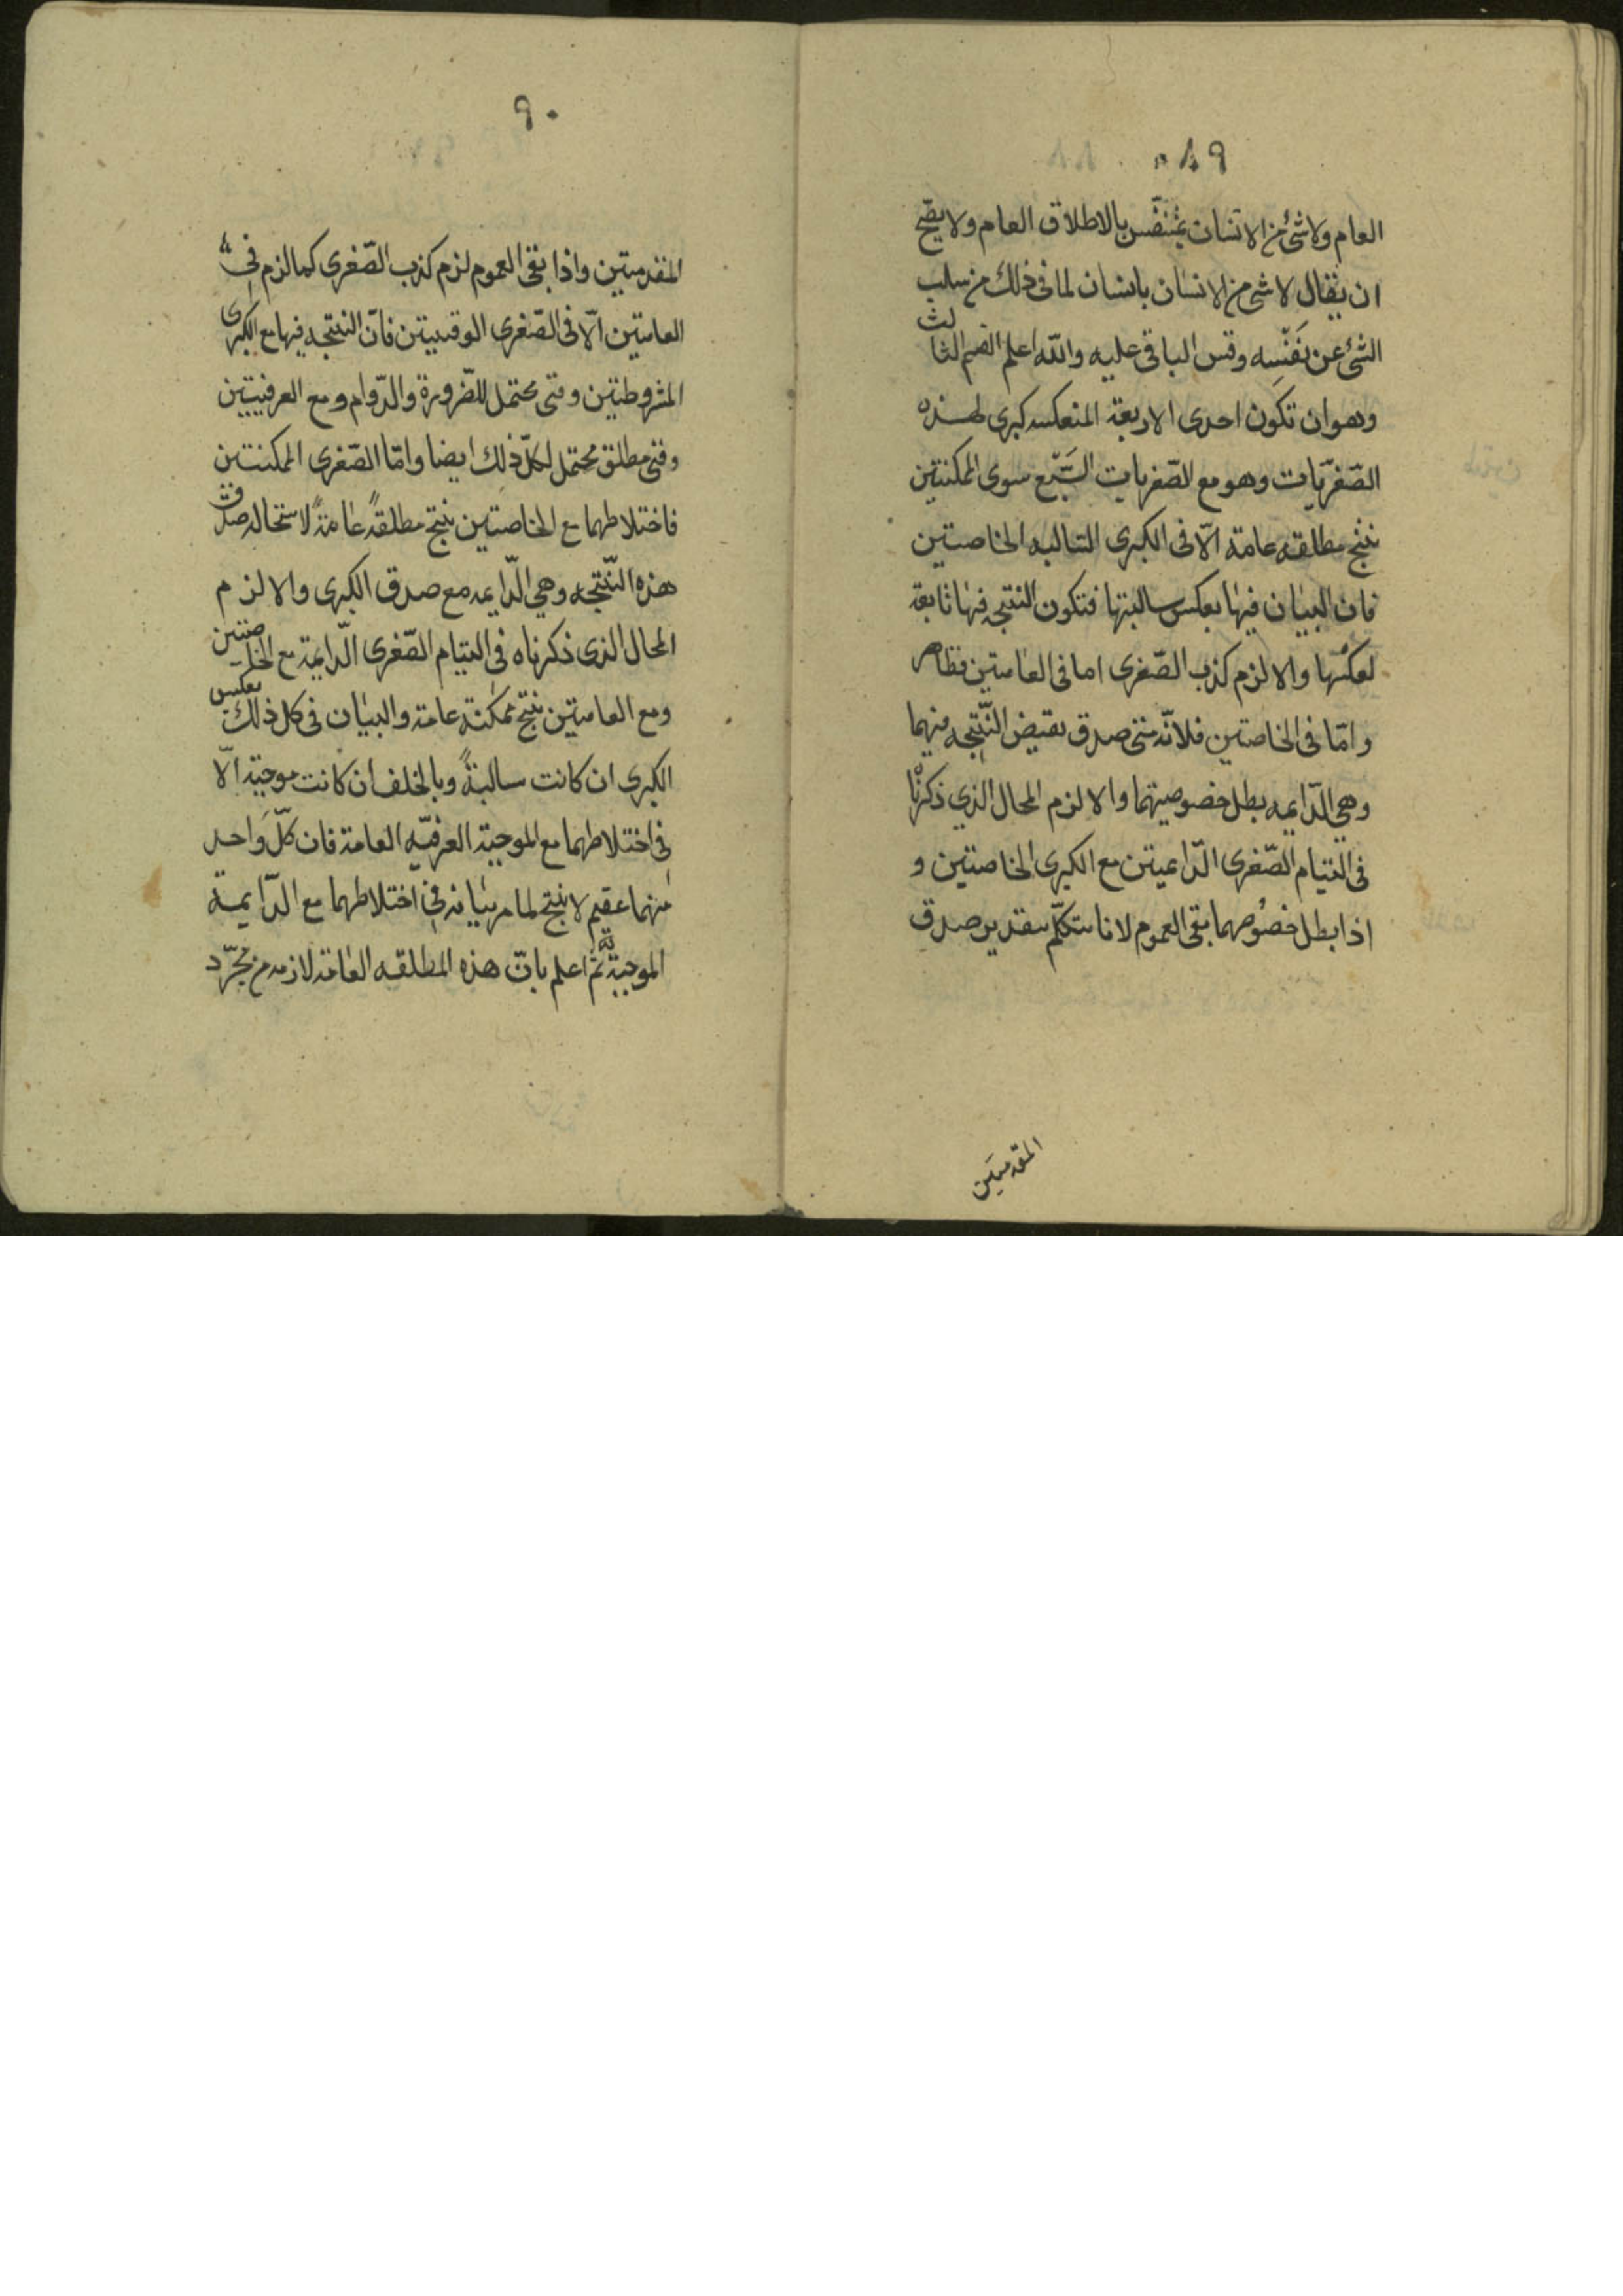 ٨٩
العام ولا شئ من الانسان بمتنفّس بالاطلاق العام ولا يصّح
ان يقال لا شئ من الانسان بانسان لما فى ذلك من سلب
الشئ عن نَفْسِه وقس الباقى عليه والله اعلم القسم الثالث
وهو ان تكون احدى الاربعة المنعكسه كبرى لهذه
الصّغريّات وهو مع الصّغريات السَّبْع سوى الممكنتين
ينتج مطلقه عامة الّا فى الكبرى السالبه الخاصيتين
فان البيان فيها بعكس سالبتها فتكون النتيجه فيها تابعة
لعكسها والا لزم كذب الصّغرى اما فى العامتين فظاهر
وامّا فى الخاصتين فلانّه متى صدق نقيض النّتيجه فيهما
وهي الدّايمه بطل خصوصيتهما والا لزم المحال الذي ذكرنا
فى التيام الصّغرى الدّايميتن مع الكبرى الخاصتين و
اذا بطل خصُوصهما بقى العموم لانا نتكلّم بتقدير صدق
المقدمتين
٩٠
المقدمتين واذا بقى العموم لزم كذب الصّغرى كما لزم فى
العامتين الّا فى الصّغرى الوقتيتين فانّ النتيجه فيها مع الكبرى
المشروطتين وقتى محتمل للضّرورة والدّوام ومع العرفيتين
وقتى مطلق محتمل لكلّ ذلك ايضا وامّا الصّغرى الممكنتين
فاختلاطهما مع الخاصتين ينتج مطلقةً عامةً لاستحاله صدق
هذه النّتيجه وهي الدّايمه مع صدق الكبرى والا لزم
المحال الذى ذكرناه فى التيام الصّغرى الدّايمة مع الخاصتين
ومع العامتين ينتج ممكنة عامة والبيان فى كل ذلك بعكس
الكبرى ان كانت سالبةً وبالخلف ان كانت موجبة الّا
فى اختلاطهما مع الموجبة العرفيّه العامة فان كلّ واحد
منهما عقيم لا ينتج لما مر بيانه فى اختلاطهما مع الدّايمة
الموجبة ثم اعلم بانّ هذه المطلقه العامة لازمه من مجرّد